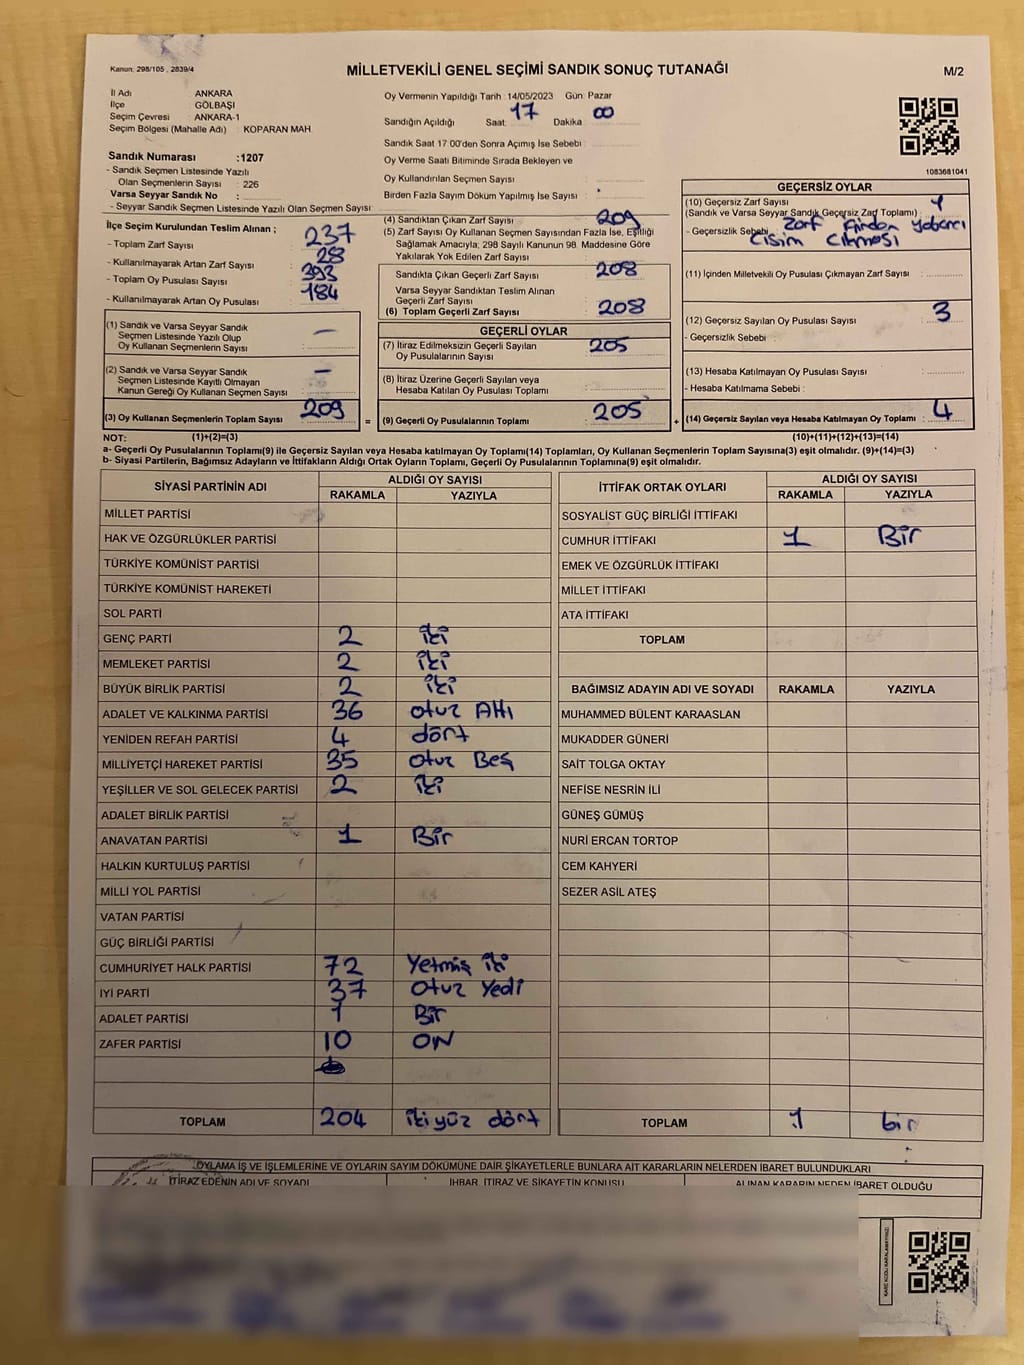 Kanun: 298/105 , 2839/4
MİLLETVEKİLİ GENEL SEÇİMİ SANDIK SONUÇ TUTANAĞI
M/2
İl Adı ANKARA
İlçe GÖLBAŞI
Seçim Çevresi : ANKARA-1
Seçim Bölgesi (Mahalle Adı) : KOPARAN MAH.
Sandık Numarası :1207
- Sandık Seçmen Listesinde Yazılı
Olan Seçmenlerin Sayısı : 226
Varsa Seyyar Sandık No :
- Seyyar Sandık Seçmen Listesinde Yazılı Olan Seçmen Sayısı:
Oy Vermenin Yapıldığı Tarih :14/05/2023 Gün: Pazar
Sandığın Açıldığı Saat: 17 Dakika : 00
Sandık Saat 17:00'den Sonra Açımış İse Sebebi :
Oy Verme Saati Bitiminde Sırada Bekleyen ve
Oy Kullandırılan Seçmen Sayısı :
Birden Fazla Sayım Döküm Yapılmış İse Sayısı :
1083681041
İlçe Seçim Kurulundan Teslim Alınan ;
- Toplam Zarf Sayısı : 237
- Kullanılmayarak Artan Zarf Sayısı : 28
- Toplam Oy Pusulası Sayısı : 393
- Kullanılmayarak Artan Oy Pusulası : 184
(1) Sandık ve Varsa Seyyar Sandık
Seçmen Listesinde Yazılı Olup
Oy Kullanan Seçmenlerin Sayısı : —
(2) Sandık ve Varsa Seyyar Sandık
Seçmen Listesinde Kayıtlı Olmayan
Kanun Gereği Oy Kullanan Seçmen Sayısı : —
(3) Oy Kullanan Seçmenlerin Toplam Sayısı : 209
(4) Sandıktan Çıkan Zarf Sayısı : 209
(5) Zarf Sayısı Oy Kullanan Seçmen Sayısından Fazla İse, Eşitliği
Sağlamak Amacıyla; 298 Sayılı Kanunun 98. Maddesine Göre
Yakılarak Yok Edilen Zarf Sayısı :
Sandıkta Çıkan Geçerli Zarf Sayısı : 208
Varsa Seyyar Sandıktan Teslim Alınan
Geçerli Zarf Sayısı :
(6) Toplam Geçerli Zarf Sayısı : 208
GEÇERLİ OYLAR
(7) İtiraz Edilmeksizin Geçerli Sayılan
Oy Pusulalarının Sayısı : 205
(8) İtiraz Üzerine Geçerli Sayılan veya
Hesaba Katılan Oy Pusulası Toplamı :
= (9) Geçerli Oy Pusulalarının Toplamı : 205
GEÇERSİZ OYLAR
(10) Geçersiz Zarf Sayısı : 1
(Sandık ve Varsa Seyyar Sandık Geçersiz Zarf Toplamı)
- Geçersizlik Sebebi : Zarf içinden yabancı
cisim çıkması
(11) İçinden Milletvekili Oy Pusulası Çıkmayan Zarf Sayısı :
(12) Geçersiz Sayılan Oy Pusulası Sayısı : 3
- Geçersizlik Sebebi :
(13) Hesaba Katılmayan Oy Pusulası Sayısı :
- Hesaba Katılmama Sebebi :
+ (14) Geçersiz Sayılan veya Hesaba Katılmayan Oy Toplamı : 4
NOT: (1)+(2)=(3) (10)+(11)+(12)+(13)=(14)
a- Geçerli Oy Pusulalarının Toplamı(9) ile Geçersiz Sayılan veya Hesaba Katılmayan Oy Toplamı(14) Toplamları, Oy Kullanan Seçmenlerin Toplam Sayısına(3) eşit olmalıdır. (9)+(14)=(3)
b- Siyasi Partilerin, Bağımsız Adayların ve İttifakların Aldığı Ortak Oyların Toplamı, Geçerli Oy Pusulalarının Toplamına(9) eşit olmalıdır.
SİYASİ PARTİNİN ADI ALDIĞI OY SAYISI
RAKAMLA YAZIYLA
MİLLET PARTİSİ
HAK VE ÖZGÜRLÜKLER PARTİSİ
TÜRKİYE KOMÜNİST PARTİSİ
TÜRKİYE KOMÜNİST HAREKETİ
SOL PARTİ
GENÇ PARTİ 2 iki
MEMLEKET PARTİSİ 2 iki
BÜYÜK BİRLİK PARTİSİ 2 iki
ADALET VE KALKINMA PARTİSİ 36 otuz Altı
YENİDEN REFAH PARTİSİ 4 dört
MİLLİYETÇİ HAREKET PARTİSİ 35 otuz Beş
YEŞİLLER VE SOL GELECEK PARTİSİ 2 iki
ADALET BİRLİK PARTİSİ
ANAVATAN PARTİSİ 1 Bir
HALKIN KURTULUŞ PARTİSİ
MİLLİ YOL PARTİSİ
VATAN PARTİSİ
GÜÇ BİRLİĞİ PARTİSİ
CUMHURİYET HALK PARTİSİ 72 Yetmiş iki
İYİ PARTİ 37 otuz yedi
ADALET PARTİSİ 1 Bir
ZAFER PARTİSİ 10 ON
TOPLAM 204 ikiyüz dört
İTTİFAK ORTAK OYLARI ALDIĞI OY SAYISI
RAKAMLA YAZIYLA
SOSYALİST GÜÇ BİRLİĞİ İTTİFAKI
CUMHUR İTTİFAKI 1 Bir
EMEK VE ÖZGÜRLÜK İTTİFAKI
MİLLET İTTİFAKI
ATA İTTİFAKI
TOPLAM
BAĞIMSIZ ADAYIN ADI VE SOYADI RAKAMLA YAZIYLA
MUHAMMED BÜLENT KARAASLAN
MUKADDER GÜNERİ
SAİT TOLGA OKTAY
NEFİSE NESRİN İLİ
GÜNEŞ GÜMÜŞ
NURİ ERCAN TORTOP
CEM KAHYERİ
SEZER ASİL ATEŞ
TOPLAM 1 bir
OYLAMA İŞ VE İŞLEMLERİNE VE OYLARIN SAYIM DÖKÜMÜNE DAİR ŞİKAYETLERLE BUNLARA AİT KARARLARIN NELERDEN İBARET BULUNDUKLARI
İTİRAZ EDENİN ADI VE SOYADI İHBAR, İTİRAZ VE ŞİKAYETİN KONUSU ALINAN KARARIN NEDEN İBARET OLDUĞU